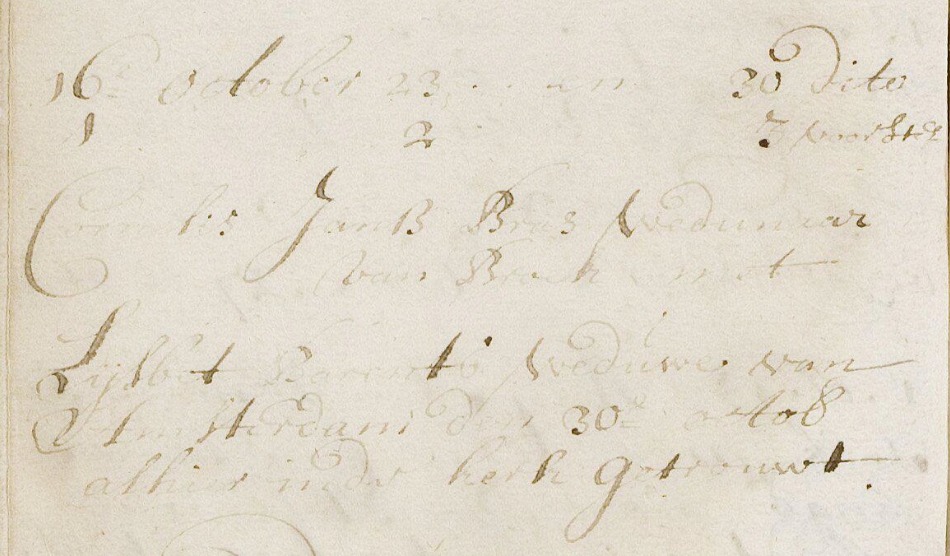 16e October 23 .. en 30 dito
1 2 3 voorstel
Cornelis JanB Bras Wedunaar
van Broek met
Lijsbet Barents Weduwe van
Amsterdam den 30e octob
alhier inde kerk getrouwt